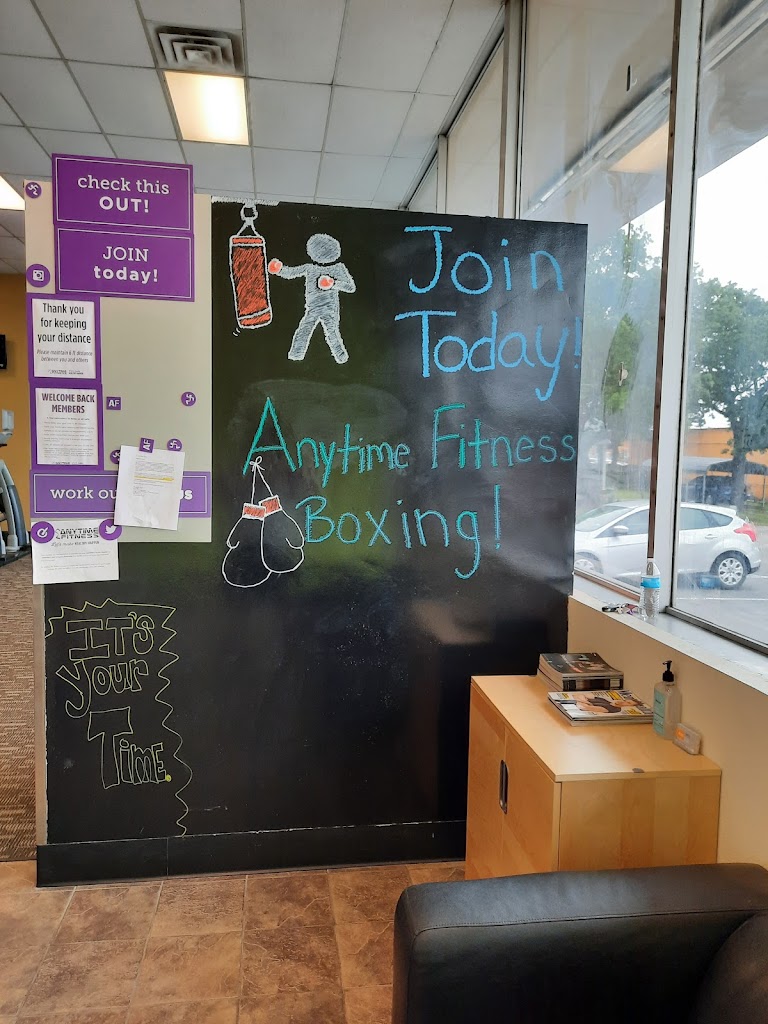 check this
OUT!
JOIN
today!
Thank you
for keeping
your distance
Please maintain 6 ft distance
between you and others
WELCOME BACK
MEMBERS
AF
AF
work ou
us
ANYTIME
FITNESS
Join
Today!
Anytime Fitness
Boxing!
IT'S
Your
Time.